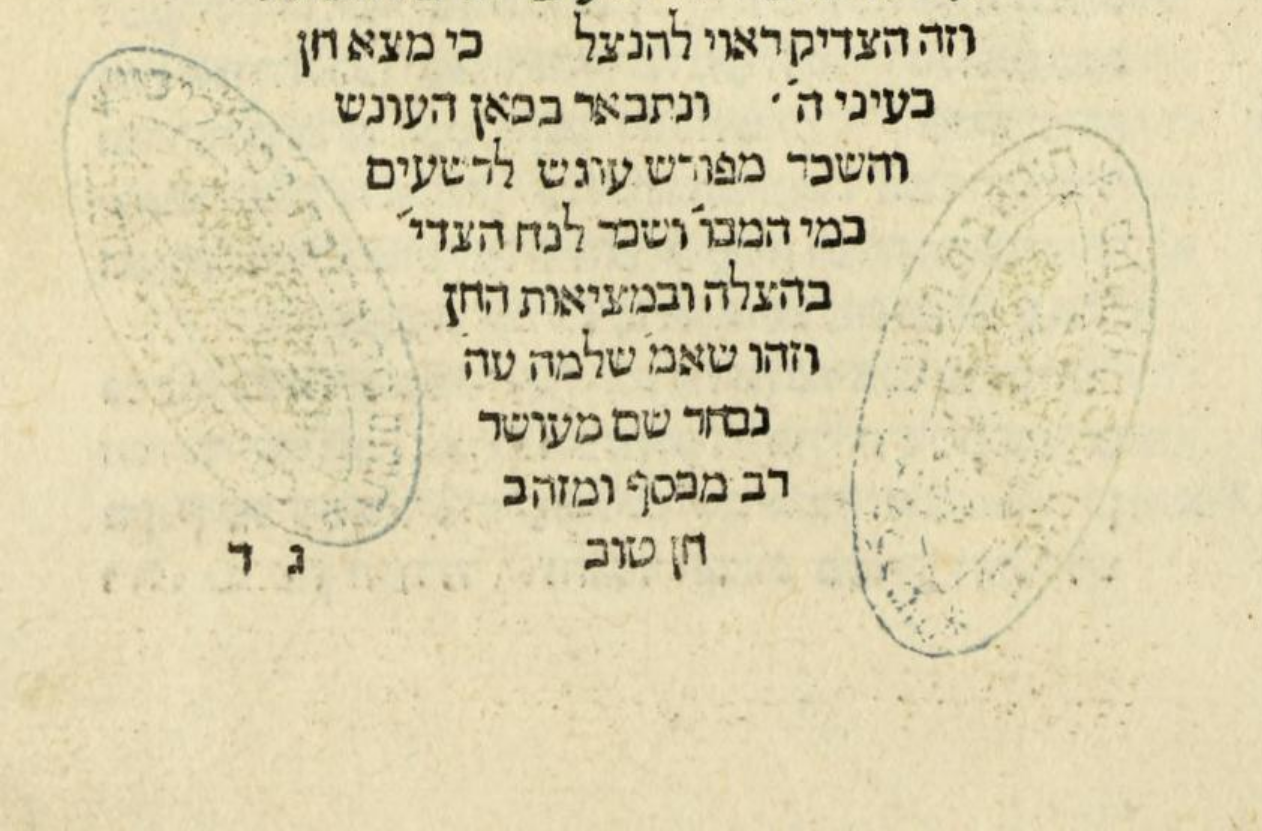 וזה הצדיק ראוי להנצל כי מצא חן
בעיני ה' ונתבאר בכאן העונש
והשכר מפורש עונש לרשעים
במי המבו' ושכר לנח הצדי'
בהצלה ובמציאות החן
וזהו שאמ' שלמה עה
נבחר שם מעושר
רב מכסף ומזהב
חן טוב
ג ד